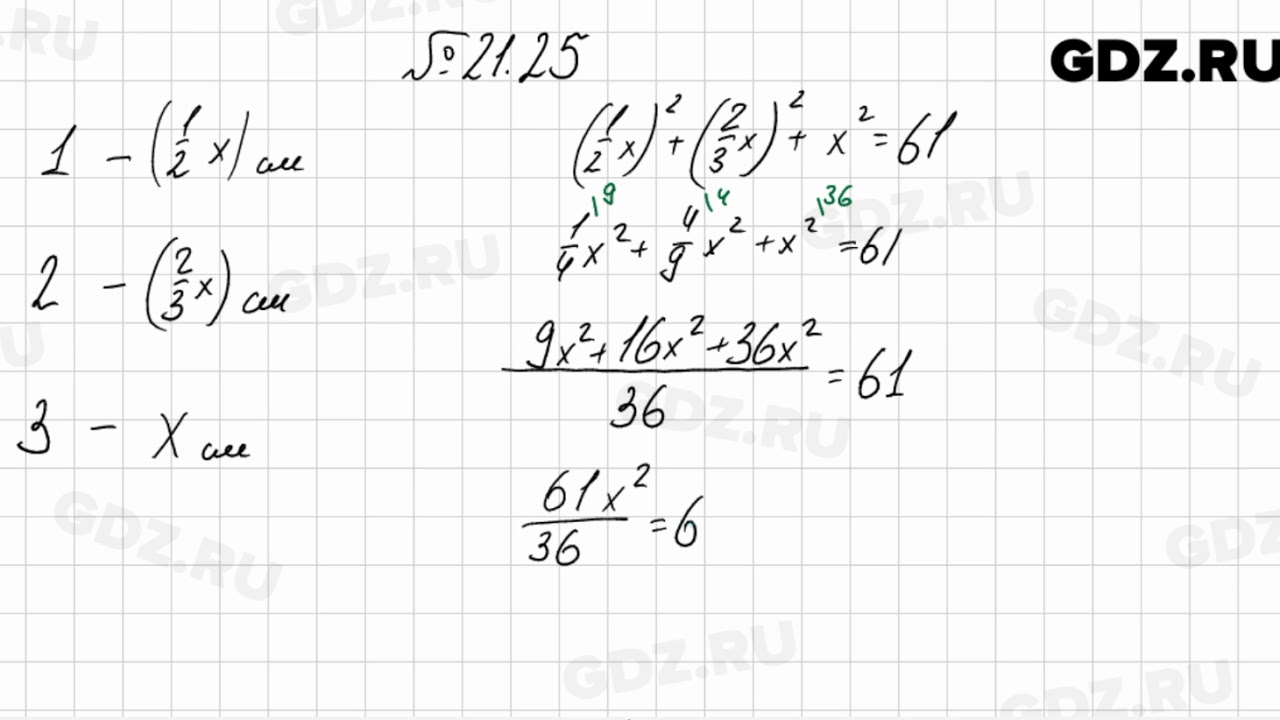 № 21.25
GDZ.RU
1 - (1/2 x) см
2 - (2/3 x) см
3 - x см
(1/2 x)² + (2/3 x)² + x² = 61
1/4 x² |9 + 4/9 x² |4 + x² |36 = 61
(9x² + 16x² + 36x²)/36 = 61
61x²/36 = 6
GDZ.RU
GDZ.RU
GDZ.RU
GDZ.RU
GDZ.RU
GDZ.RU
GDZ.RU
GDZ.RU
GDZ.RU